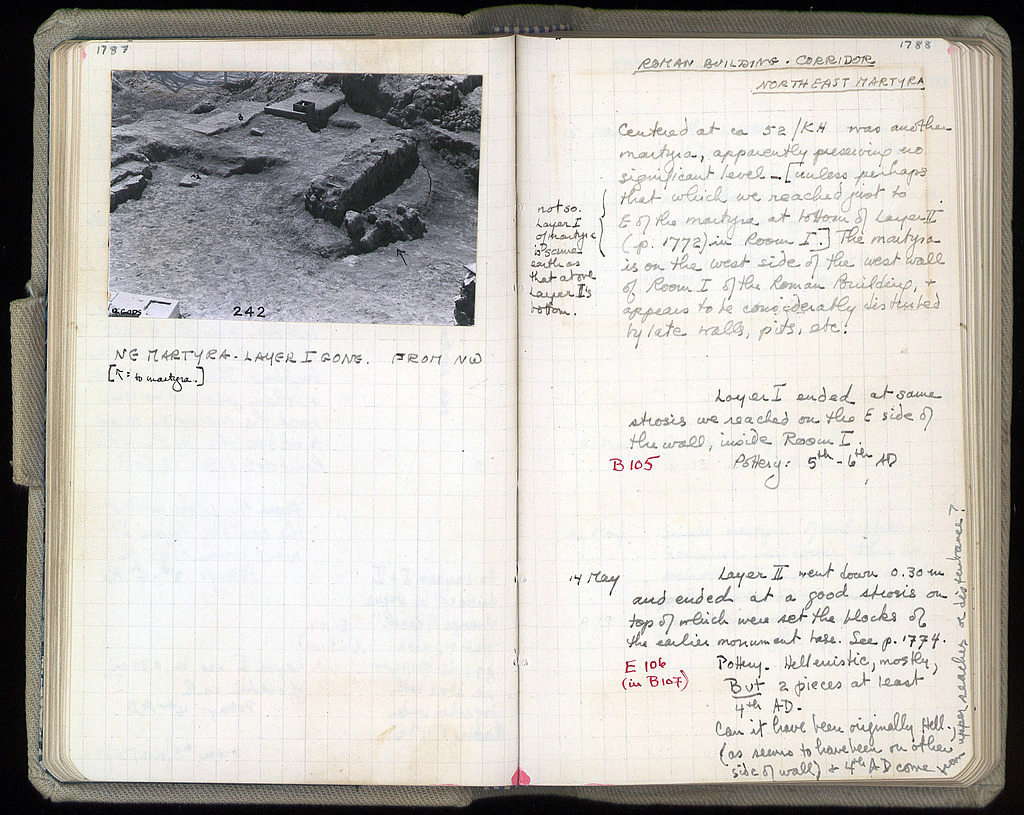 1787
242
NE MARTYRA - LAYER I GONE. FROM NW
[↖ = to martyra.]
1788
ROMAN BUILDING · CORRIDOR
NORTHEAST MARTYRA
Centered at ca 52/KH was another
martyra, apparently preserving no
significant level – [unless perhaps
that which we reached just to
E of the martyra at bottom of Layer II
(p. 1772) in Room I.] The martyra
is on the west side of the west wall
of Room I of the Roman Building, +
appears to be considerably disturbed
by late walls, pits, etc.
not so.
Layer I
of martyra
is same
earth as
that above
Layer II's
bottom.
Layer I ended at same
strosis we reached on the E side of
the wall, inside Room I.
B 105
Pottery: 5th - 6th AD
14 May
Layer II went down 0.30 m
and ended at a good strosis on
top of which were set the blocks of
the earlier monument base. See p. 1774.
E 106
(in B107)
Pottery. Hellenistic, mostly,
But 2 pieces at least
4th AD.
Can it have been originally Hell.,
(as seems to have been on other
side of wall) + 4th AD come from upper reaches or disturbance?